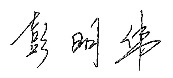 彭明伟